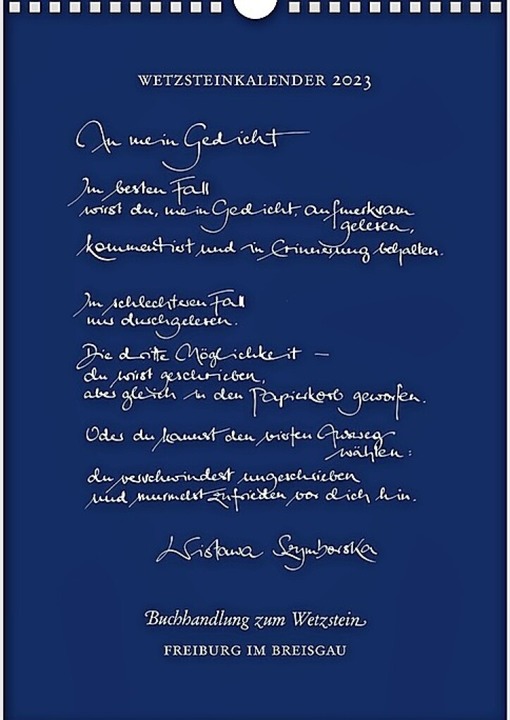 WETZSTEINKALENDER 2023
An mein Gedicht
Im besten Fall
wirst du, mein Gedicht, aufmerksam
gelesen,
kommentiert und in Erinnerung behalten.
Im schlechteren Fall
nur durchgelesen.
Die dritte Möglichkeit —
du wirst geschrieben,
aber gleich in den Papierkorb geworfen.
Oder du kannst den vierten Ausweg
wählen:
du verschwindest ungeschrieben
und murmelst zufrieden vor dich hin.
Wisława Szymborska
Buchhandlung zum Wetzstein
FREIBURG IM BREISGAU